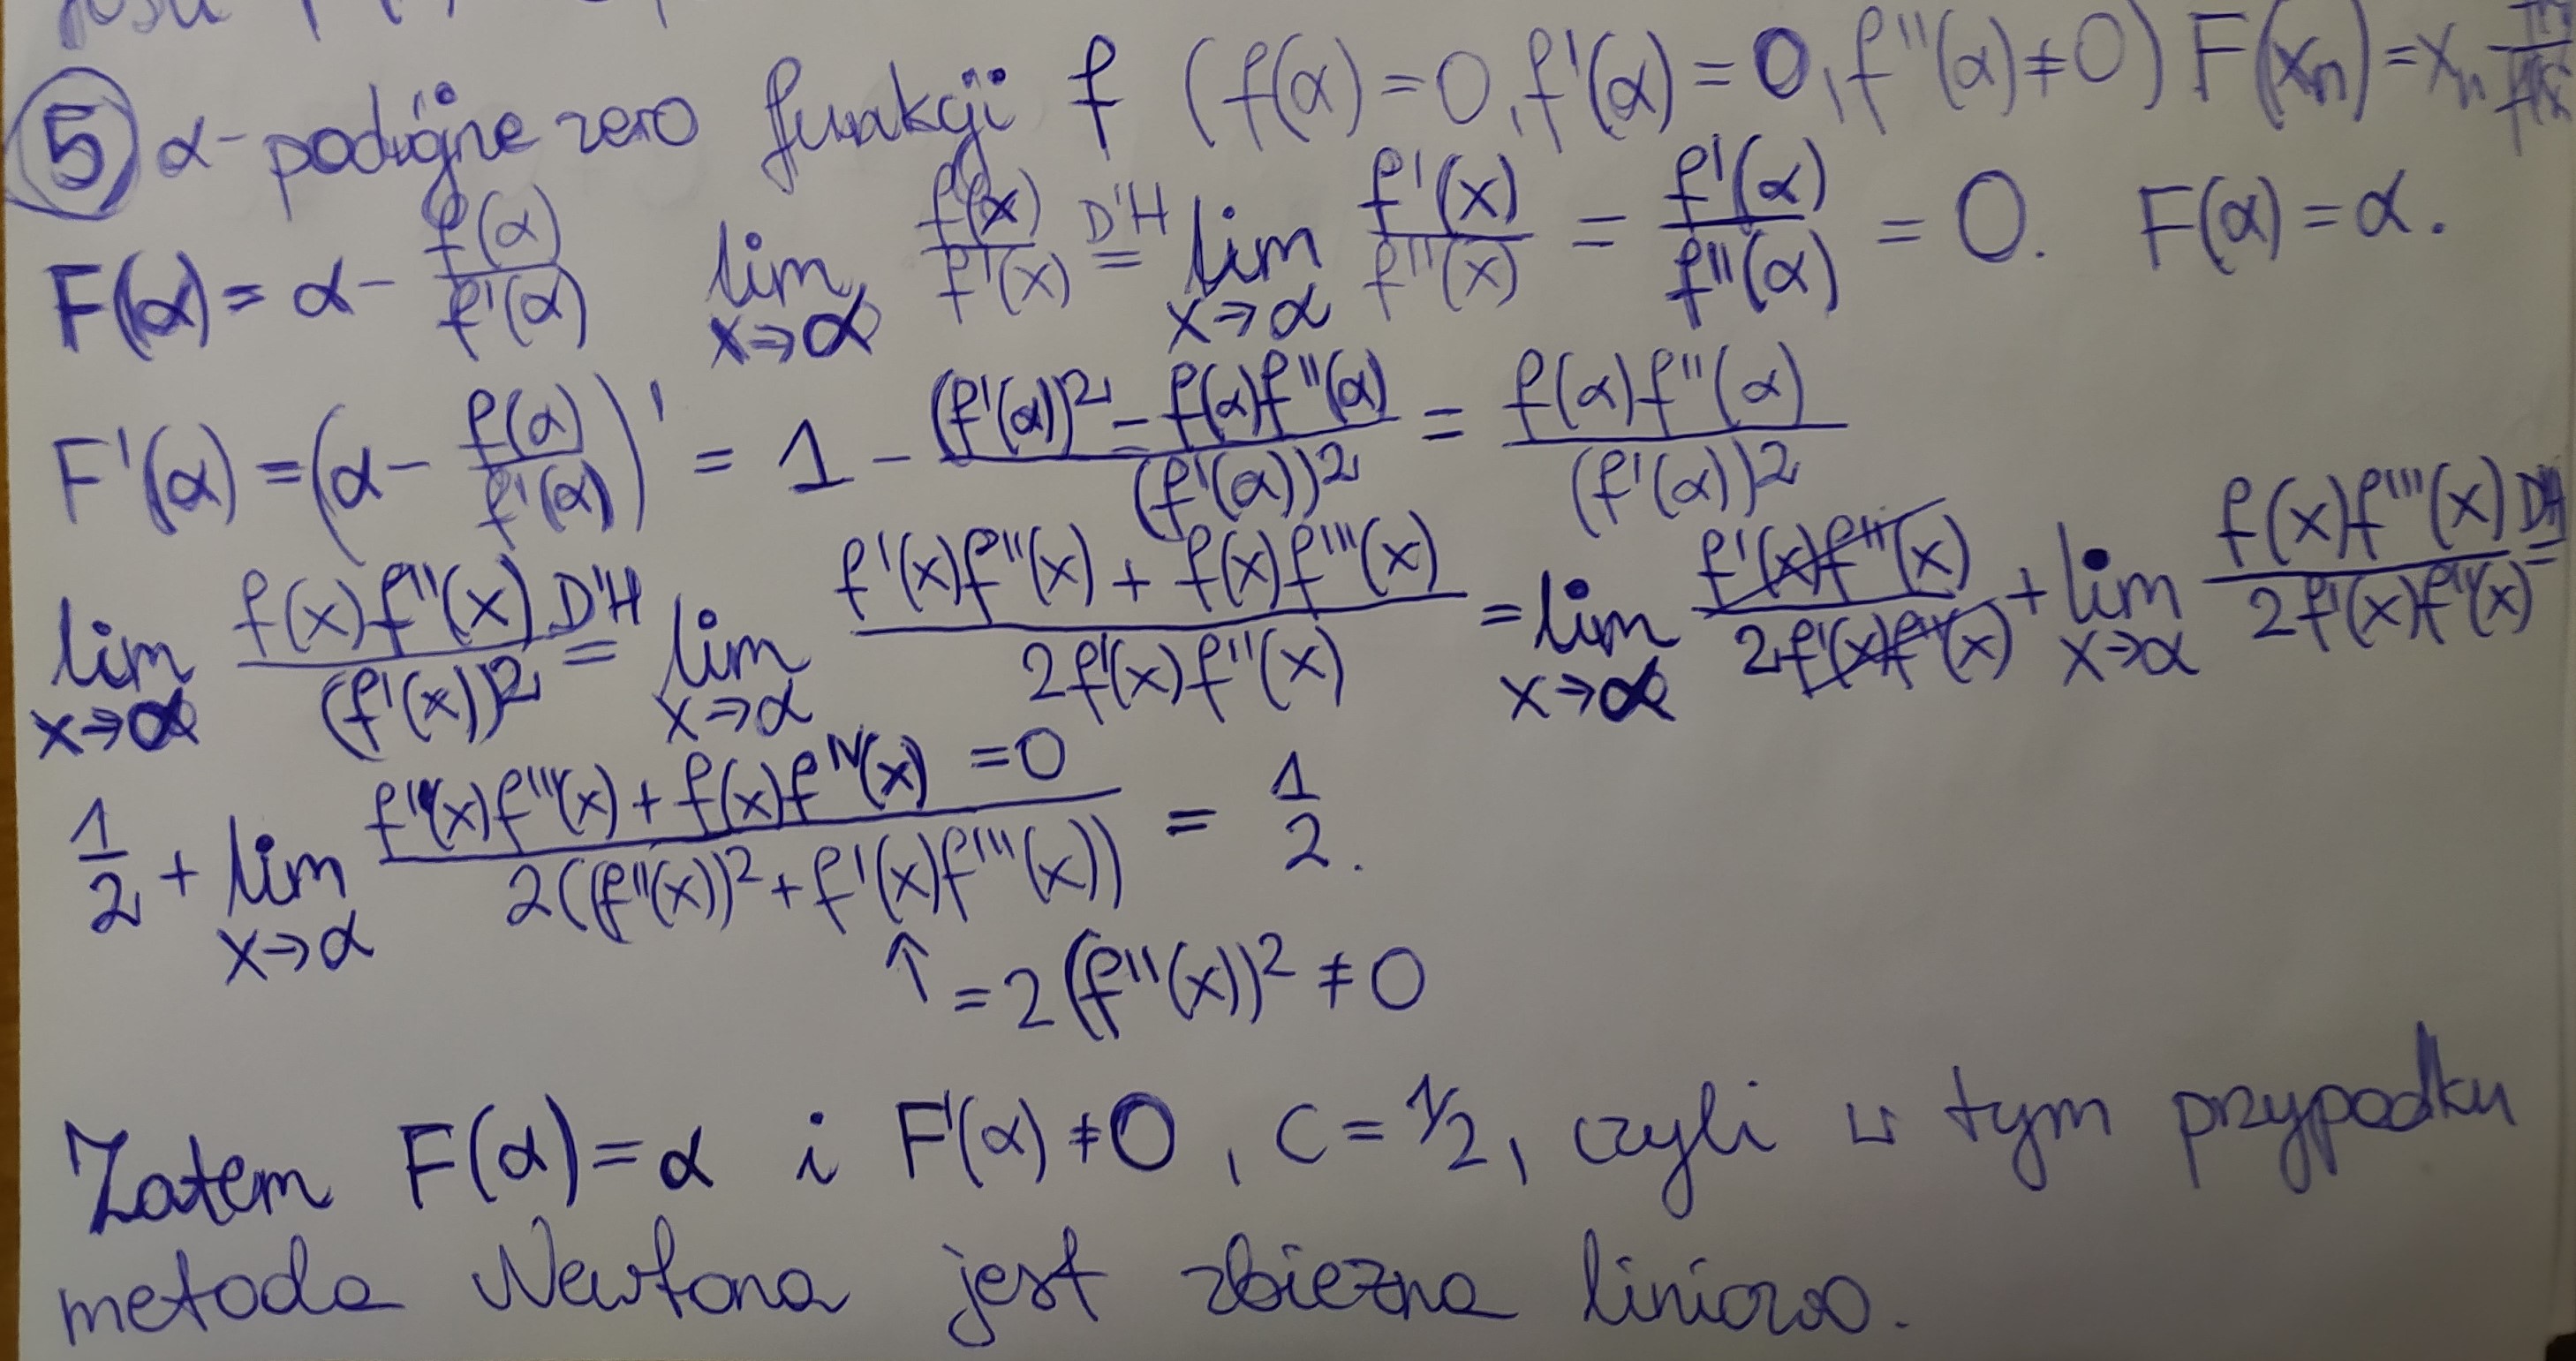 ⑤ α - podwójne zero funkcji f (f(α) = 0, f'(α) = 0, f''(α) ≠ 0) F(xₙ) = xₙ
F(α) = α - f(α)/f'(α) lim x→α f(x)/f'(x) D'H= lim x→α f'(x)/f''(x) = f'(α)/f''(α) = 0. F(α) = α.
F'(α) = (α - f(α)/f'(α))' = 1 - ((f'(α))² - f(α)f''(α))/(f'(α))² = f(α)f''(α)/(f'(α))²
lim x→α f(x)f''(x)/(f'(x))² D'H= lim x→α (f'(x)f''(x) + f(x)f'''(x))/(2f'(x)f''(x)) = lim x→α f'(x)f''(x)/(2f'(x)f''(x)) + lim x→α f(x)f'''(x)/(2f'(x)f''(x)) D'H=
1/2 + lim x→α (f'(x)f'''(x) + f(x)f^IV(x) = 0)/(2((f''(x))² + f'(x)f'''(x))) = 1/2.
↑ = 2(f''(x))² ≠ 0
Zatem F(α) = α i F'(α) ≠ 0, C = 1/2, czyli w tym przypadku
metoda Newtona jest zbieżna liniowo.